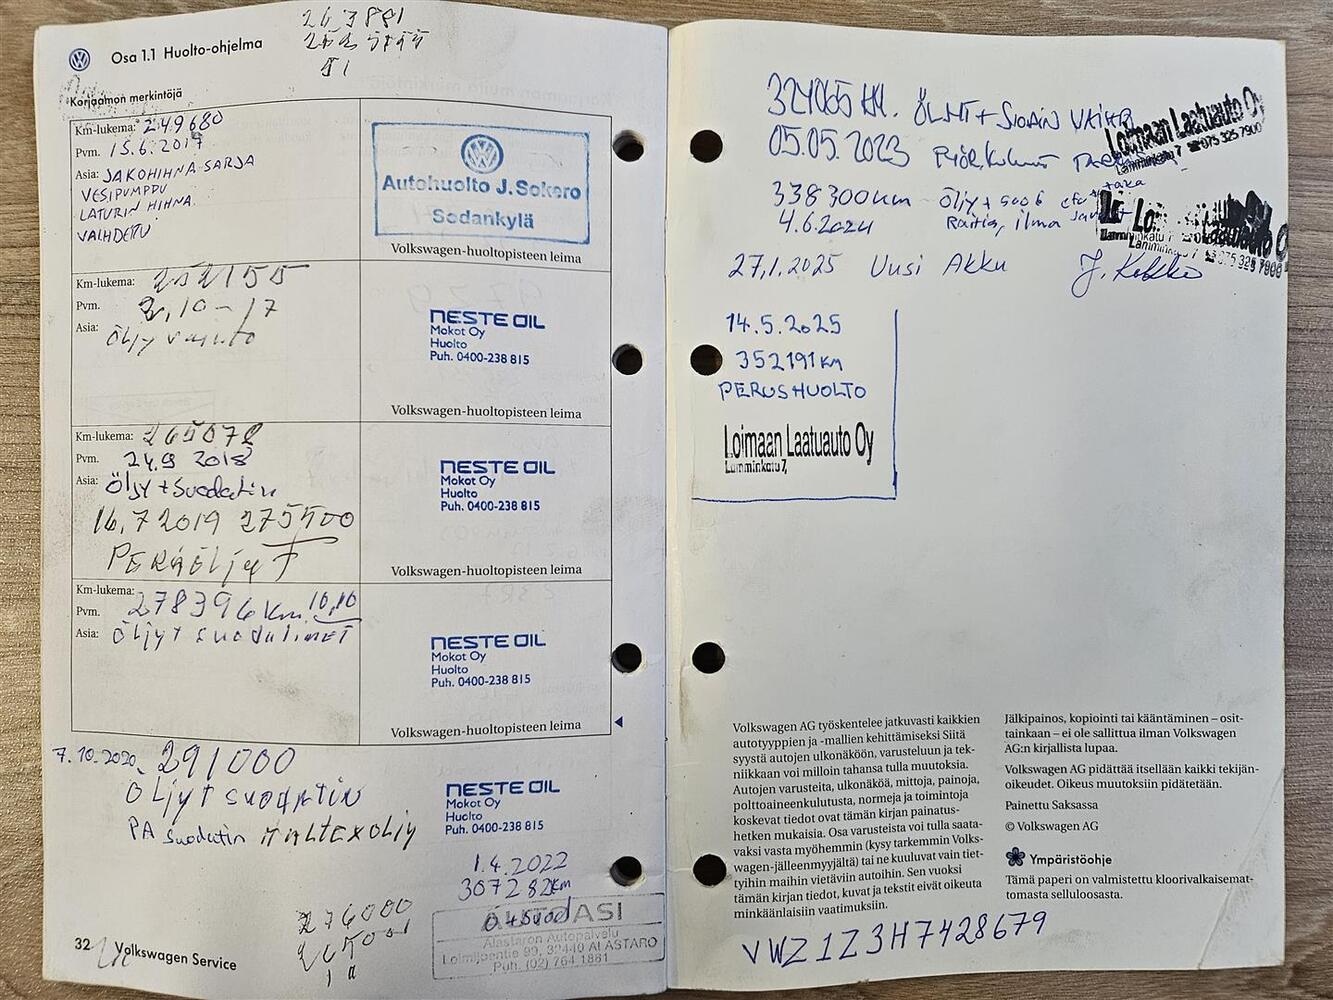 Osa 1.1 Huolto-ohjelma
263881
Korjaamon merkintöjä
Km-lukema: 249680
Pvm. 15.6.2017
Asia: JAKOHIHNA SARJA
VESIPUMPPU
LATURIN HIHNA
VAIHDETTU
Autohuolto J. Sokero
Sodankylä
Volkswagen-huoltopisteen leima
Km-lukema: 252155
Pvm. 2,10-17
Asia: Öljy vaihto
NESTE OIL
Mokot Oy
Huolto
Puh. 0400-238 815
Volkswagen-huoltopisteen leima
Km-lukema: 265078
Pvm. 24.9 2018
Asia: Öljy + Suodatin
16.7 2019 275500
PERÄÖLJYT
NESTE OIL
Mokot Oy
Huolto
Puh. 0400-238 815
Volkswagen-huoltopisteen leima
Km-lukema: 278396 km
Pvm. 10,10
Asia: Öljyt suodatimet
NESTE OIL
Mokot Oy
Huolto
Puh. 0400-238 815
Volkswagen-huoltopisteen leima
7.10.2020. 291000
Öljyt suodatin
PA suodatin HALTEXÖLJY
NESTE OIL
Mokot Oy
Huolto
Puh. 0400-238 815
1.4.2022
307282km
Ö+suod
AUTOASI
Alastaron Autopalvelu
Loimijoentie 99, 32440 ALASTARO
Puh. (02) 764 1881
276000
32 Volkswagen Service
324065 KM. ÖLJYT + SUODATIN VAIHTO
05.05.2023
Loimaan Laatuauto Oy
Lamminkatu 7 ☎ 075 325 7900
338300km - öljy + suod
4.6.2024 Raitis, ilma
Lamminkatu 7 ☎ 075 325 7900
27,1.2025 Uusi Akku
14.5.2025
352191 KM
PERUSHUOLTO
Loimaan Laatuauto Oy
Lamminkatu 7,
Volkswagen AG työskentelee jatkuvasti kaikkien
autotyyppien ja -mallien kehittämiseksi Siitä
syystä autojen ulkonäköön, varusteluun ja tek-
niikkaan voi milloin tahansa tulla muutoksia.
Autojen varusteita, ulkonäköä, mittoja, painoja,
polttoaineenkulutusta, normeja ja toimintoja
koskevat tiedot ovat tämän kirjan painatus-
hetken mukaisia. Osa varusteista voi tulla saata-
vaksi vasta myöhemmin (kysy tarkemmin Volks-
wagen-jälleenmyyjältä) tai ne kuuluvat vain tiet-
tyihin maihin vietäviin autoihin. Sen vuoksi
tämän kirjan tiedot, kuvat ja tekstit eivät oikeuta
minkäänlaisiin vaatimuksiin.
Jälkipainos, kopiointi tai kääntäminen – osit-
tainkaan – ei ole sallittua ilman Volkswagen
AG:n kirjallista lupaa.
Volkswagen AG pidättää itsellään kaikki tekijän-
oikeudet. Oikeus muutoksiin pidätetään.
Painettu Saksassa
© Volkswagen AG
Ympäristöohje
Tämä paperi on valmistettu kloorivalkaisemat-
tomasta selluloosasta.
VWZ1Z3H7428679